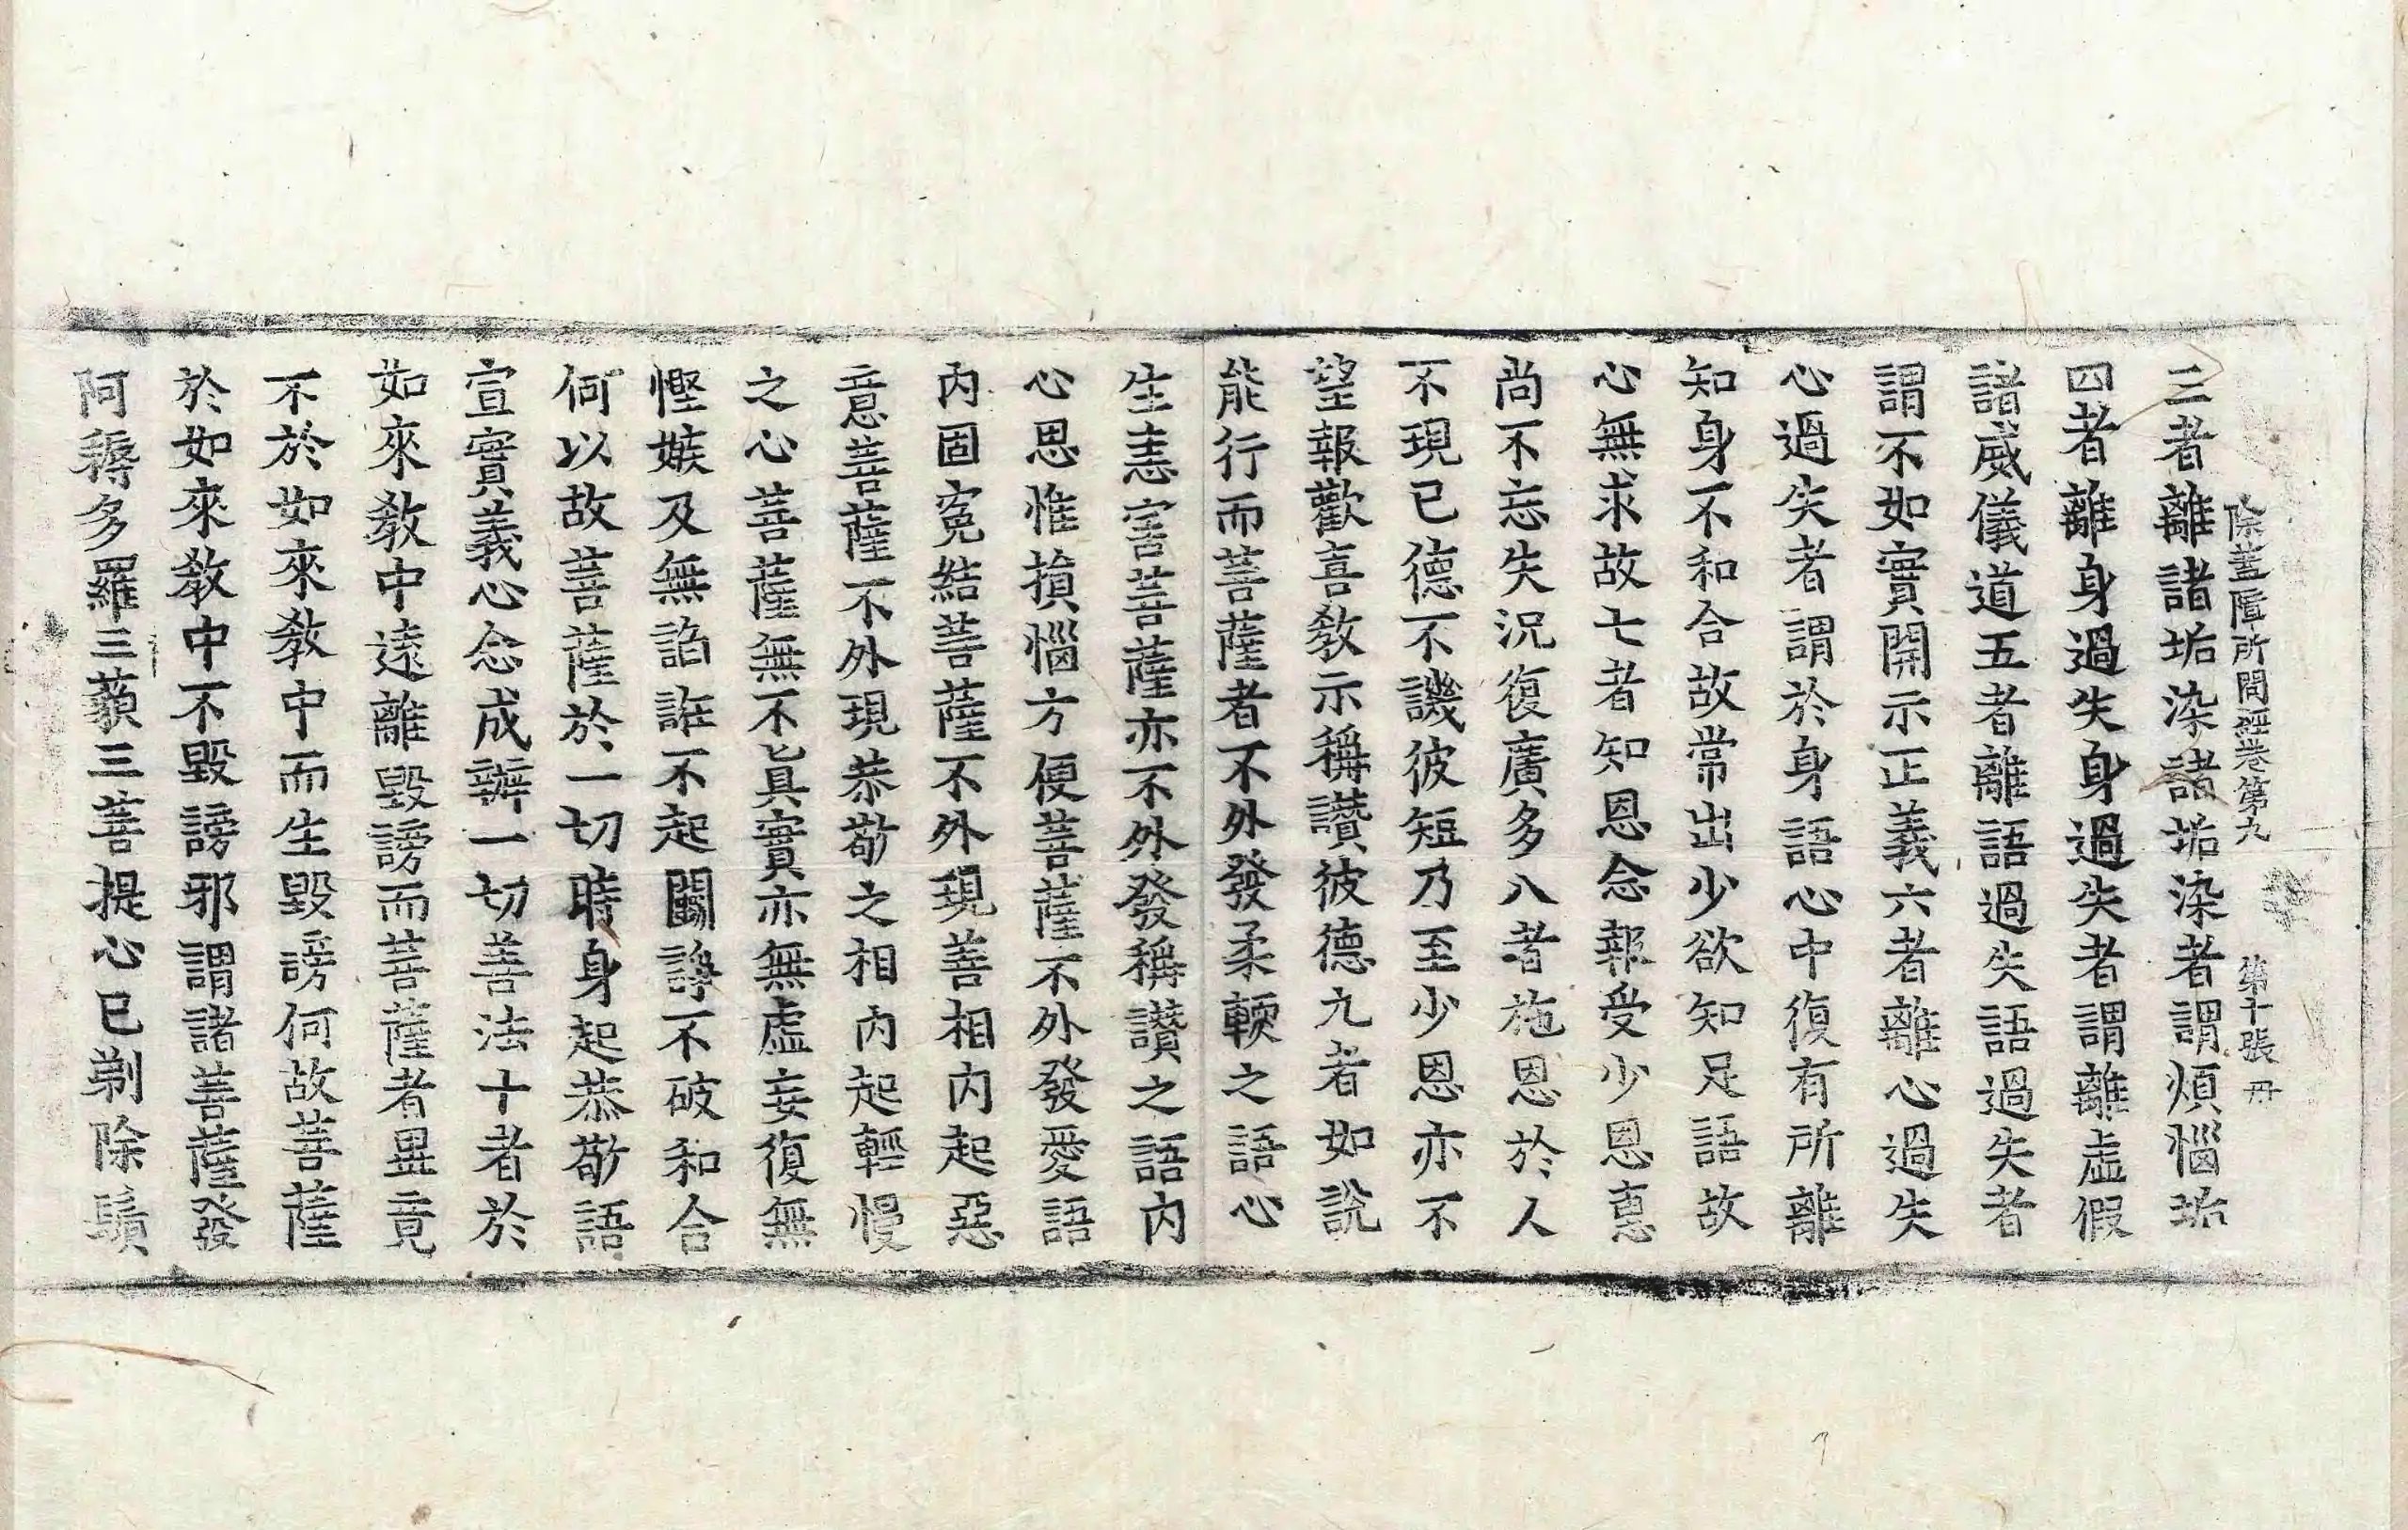 除蓋障所問經卷第九 第十張 丹
三者離諸垢染諸垢染者謂煩惱垢
四者離身過失身過失者謂離虛假
諸威儀道五者離語過失語過失者
謂不如實開示正義六者離心過失
心過失者謂於身語心中復有所離
知身不和合故常出少欲知足語故
心無求故七者知恩念報受少恩惠
尚不忘失況復廣多八者施恩於人
不現已德不譏彼短乃至少恩亦不
望報歡喜教示稱讚彼德九者如說
能行而菩薩者不外發柔軟之語心
生恚害菩薩亦不外發稱讚之語內
心思惟損惱方便菩薩不外發愛語
內固寃結菩薩不外現善相內起惡
意菩薩不外現恭敬之相內起輕慢
之心菩薩無不真實亦無虛妄復無
慳嫉及無諂誑不起鬭諍不破和合
何以故菩薩於一切時身起恭敬語
宣實義心念成辦一切善法十者於
如來教中遠離毀謗而菩薩者畢竟
不於如來教中而生毀謗何故菩薩
於如來教中不毀謗邪謂諸菩薩發
阿耨多羅三藐三菩提心已剃除鬚